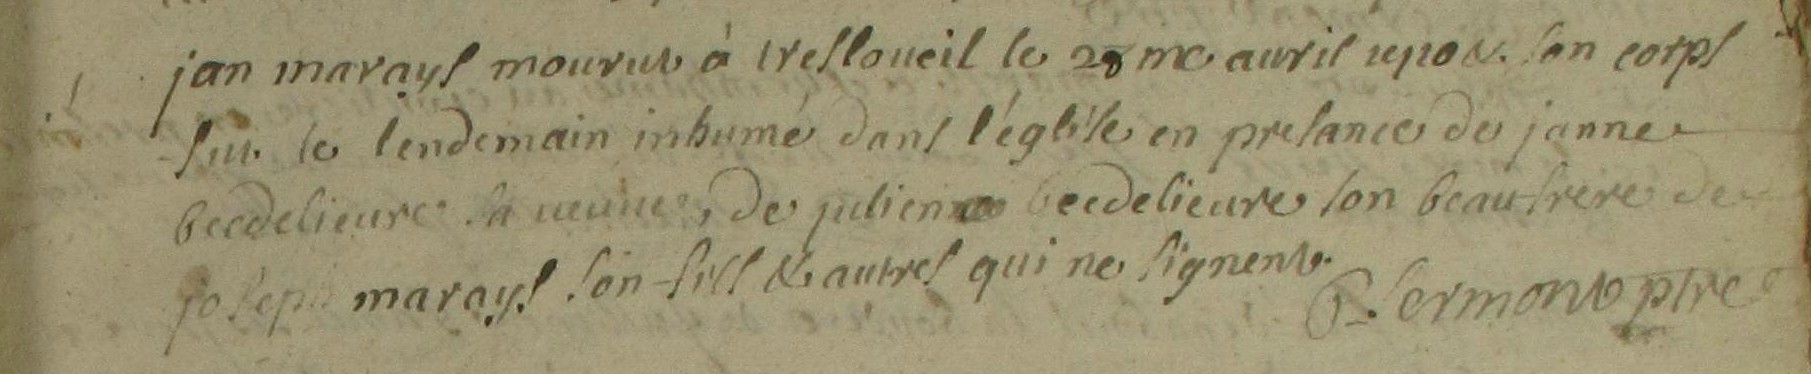 jan marays mourut à tresloueil le 28me auril 1710 &. son corps
fut le lendemain inhumé dans l'églife en presance de janne
becdelieure sa veuue, de julien becdelieure son beaufrere de
joseph marays son fils & autres qui ne signent.
P. sermont ptre